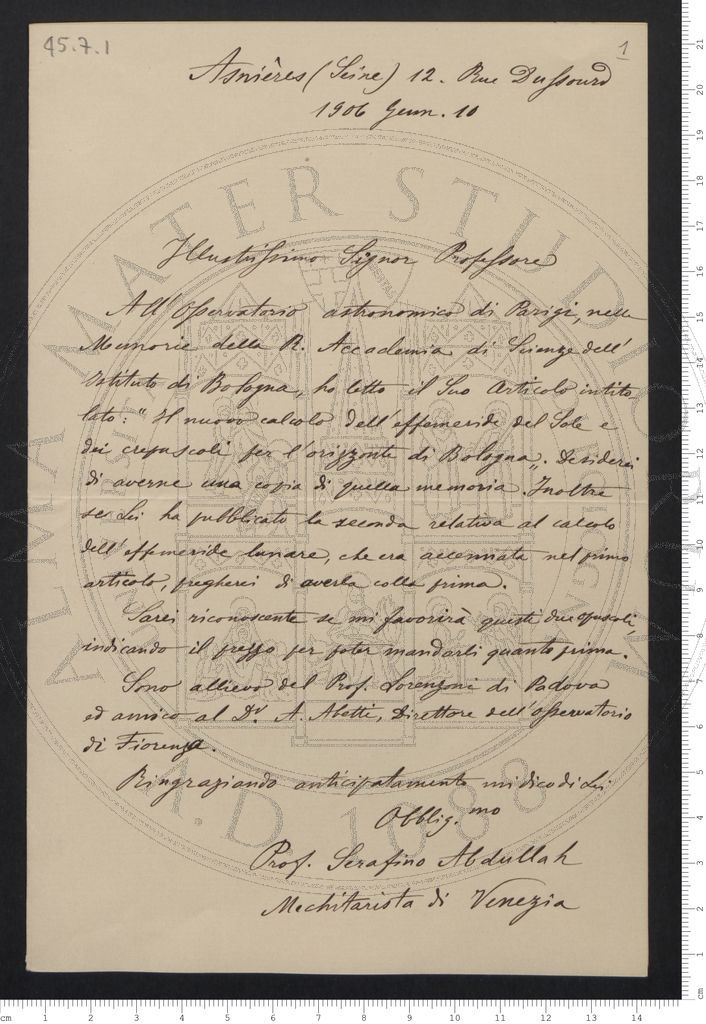 45.7.1
1
Asnières (Seine) 12. Rue Dussourd
1906 Genn. 10
Illustrissimo Signor Professore
All'Osservatorio astronomico di Parigi, nelle
Memorie della R. Accademia di Scienze dell'
Istituto di Bologna, ho letto il Suo Articolo intito
lato: "Il nuovo calcolo dell'effemeride del Sole e
dei crepuscoli per l'orizzonte di Bologna„. Desiderei
di averne una copia di quella memoria. Inoltre
se Lei ha pubblicato la seconda relativa al calcolo
dell'effemeride lunare, che era accennata nel primo
articolo, pregherei di averla colla prima.
Sarei riconoscente se mi favorirà questi due opuscoli
indicando il prezzo per poter mandarli quanto prima.
Sono allievo del Prof. Lorenzoni di Padova
ed amico al Dr. A. Abetti, Direttore dell'Osservatorio
di Fiorenza.
Ringraziando anticipatamente mi dico di Lei
Obblig.mo
Prof. Serafino Abdullah
Mechitarista di Venezia
ALMA MATER STUDIORUM
A.D. 1088